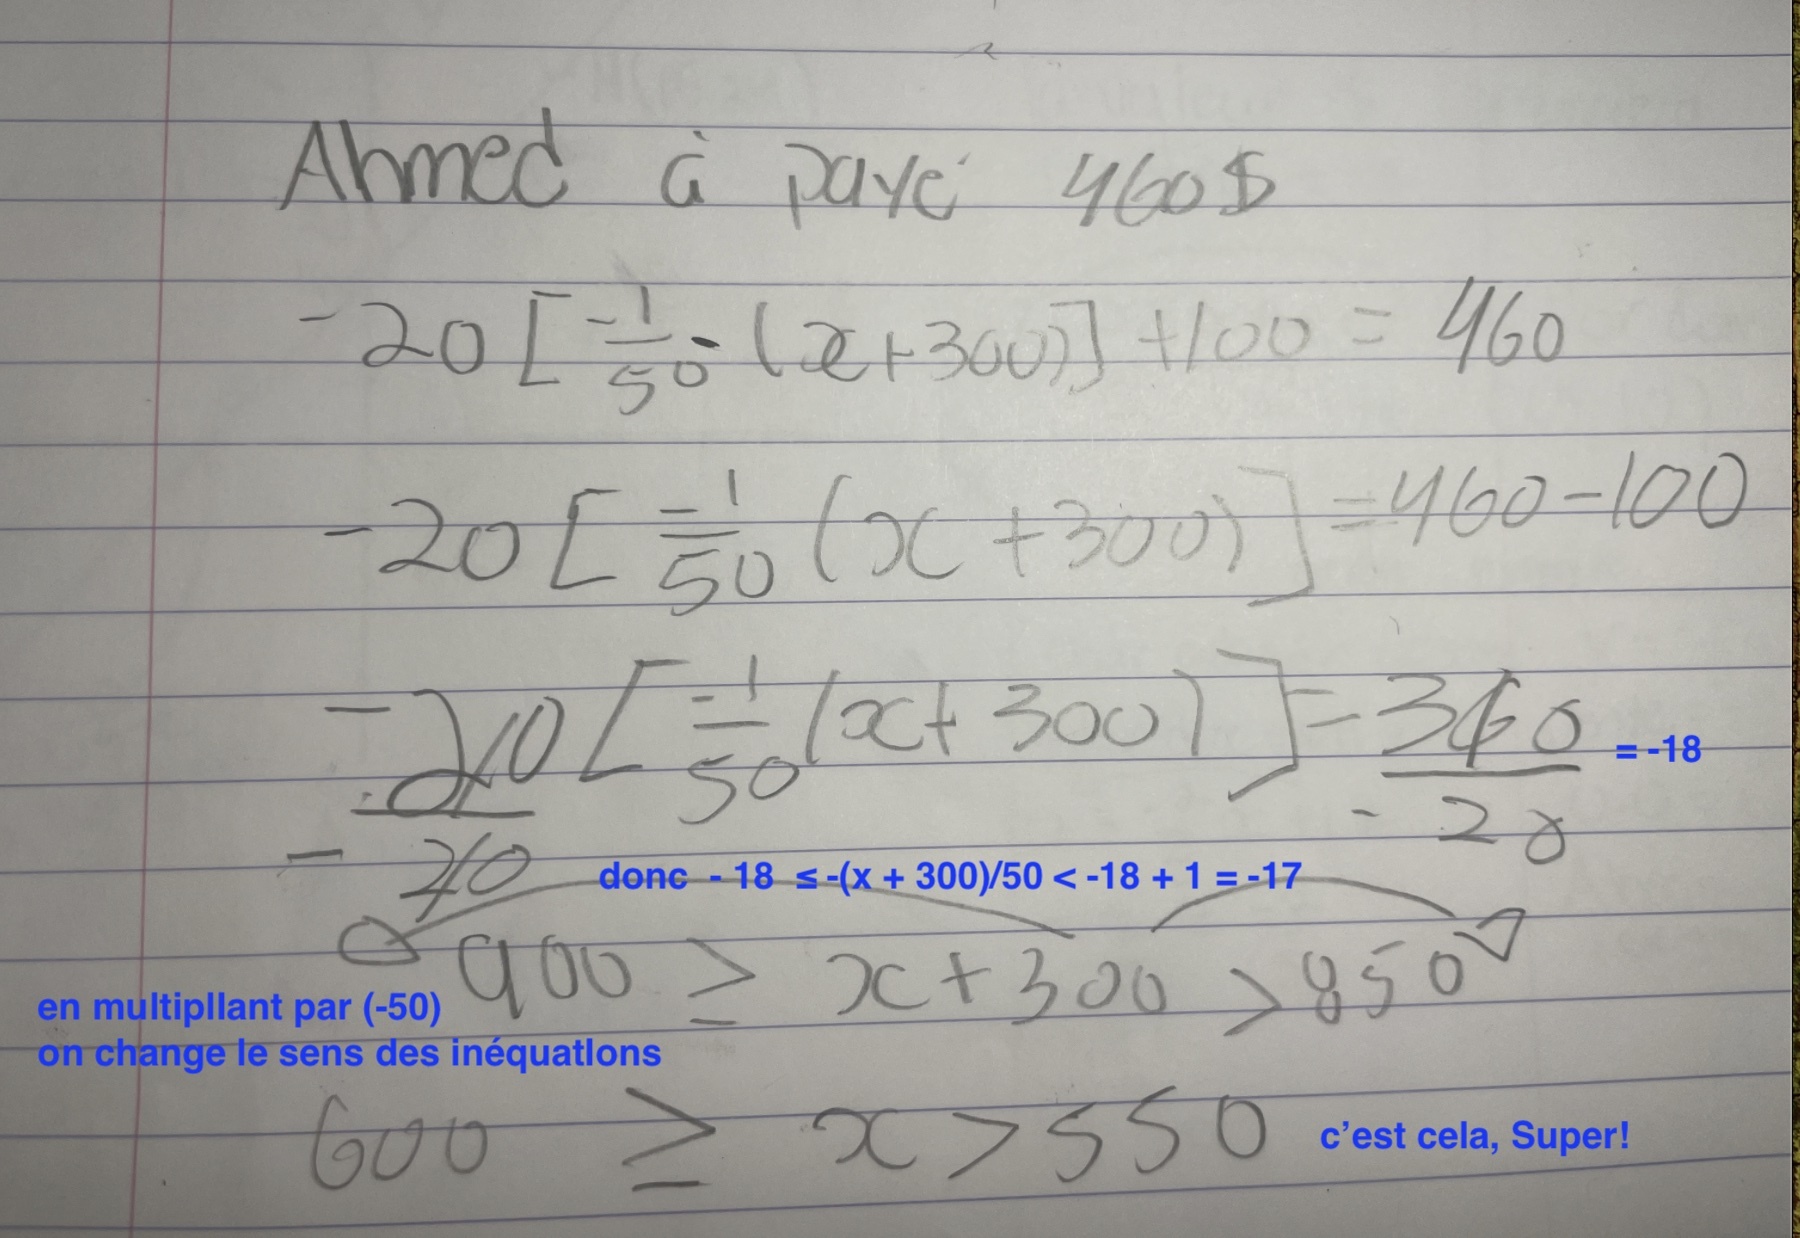 Ahmed à payé 460$
-20[-1/50·(x+300)]+100 = 460
-20[-1/50(x+300)]=460-100
-20[-1/50(x+300)]=360 = -18
-20 -20
donc - 18 ≤ -(x + 300)/50 < -18 + 1 = -17
900 ≥ x+300 > 850
en multipllant par (-50)
on change le sens des inéquatIons
600 ≥ x > 550 c'est cela, Super!